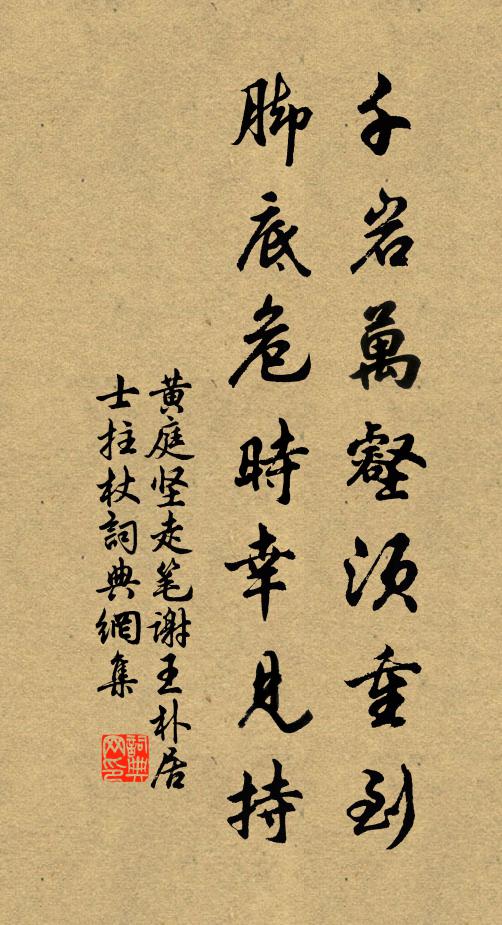 千岩萬壑須重到
脚底危時幸見持
黄庭坚走笔谢王朴居
士拄杖詞典網集
詞典
网印